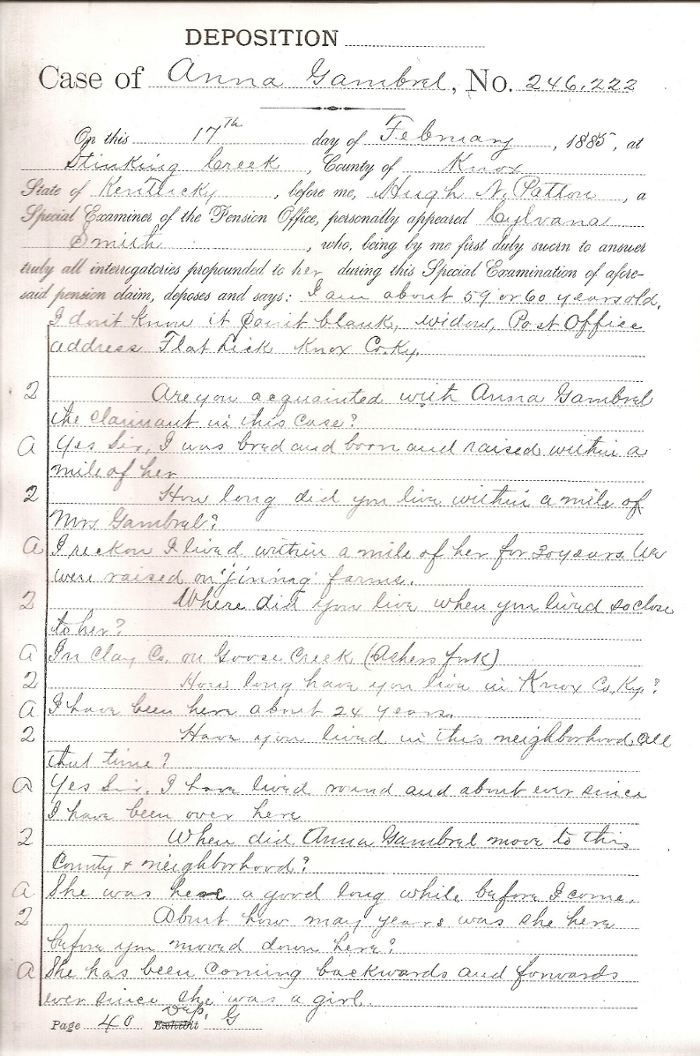 DEPOSITION
Case of Anna Gambrel, No. 246,222
On this 17th day of February, 1885, at
Stinking Creek, County of Knox
State of Kentucky, before me, Hugh N. Patton, a
Special Examiner of the Pension Office, personally appeared Cylvana
Smith, who, being by me first duly sworn to answer
truly all interrogatories propounded to her during this Special Examination of afore-
said pension claim, deposes and says: I am about 59 or 60 years old,
I don't know it point blank, widow, Post Office
address Flat Lick Knox Co. Ky.
2 Are you acquainted with Anna Gambrel
the claimant in this case?
a Yes Sir, I was bred and born and raised within a
mile of her
2 How long did you live within a mile of
Mrs. Gambrel?
a I reckon I lived within a mile of her for 30 years. We
were raised on 'jining' farms.
2 Where did you live when you lived so close
to her?
a In Clay Co. on Goose Creek (Ashers fork)
2 How long have you live in Knox Co. Ky?
a I have been here about 24 years.
2 Have you lived in this neighborhood all
that time?
a Yes Sir, I have lived round and about ever since
I have been over here
2 When did Anna Gambrel move to this
County & neighborhood?
a She was here a good long while before I come.
2 About how may years was she here
before you moved down here?
a She has been coming backwards and forwards
ever since she was a girl.
Page 40 Exhibit Dep. G